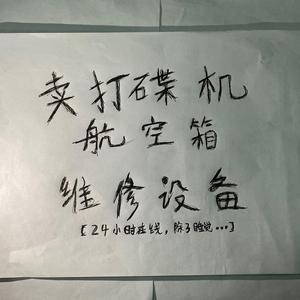 卖打碟机
航空箱
维修设备
[24小时在线，除了睡觉...]